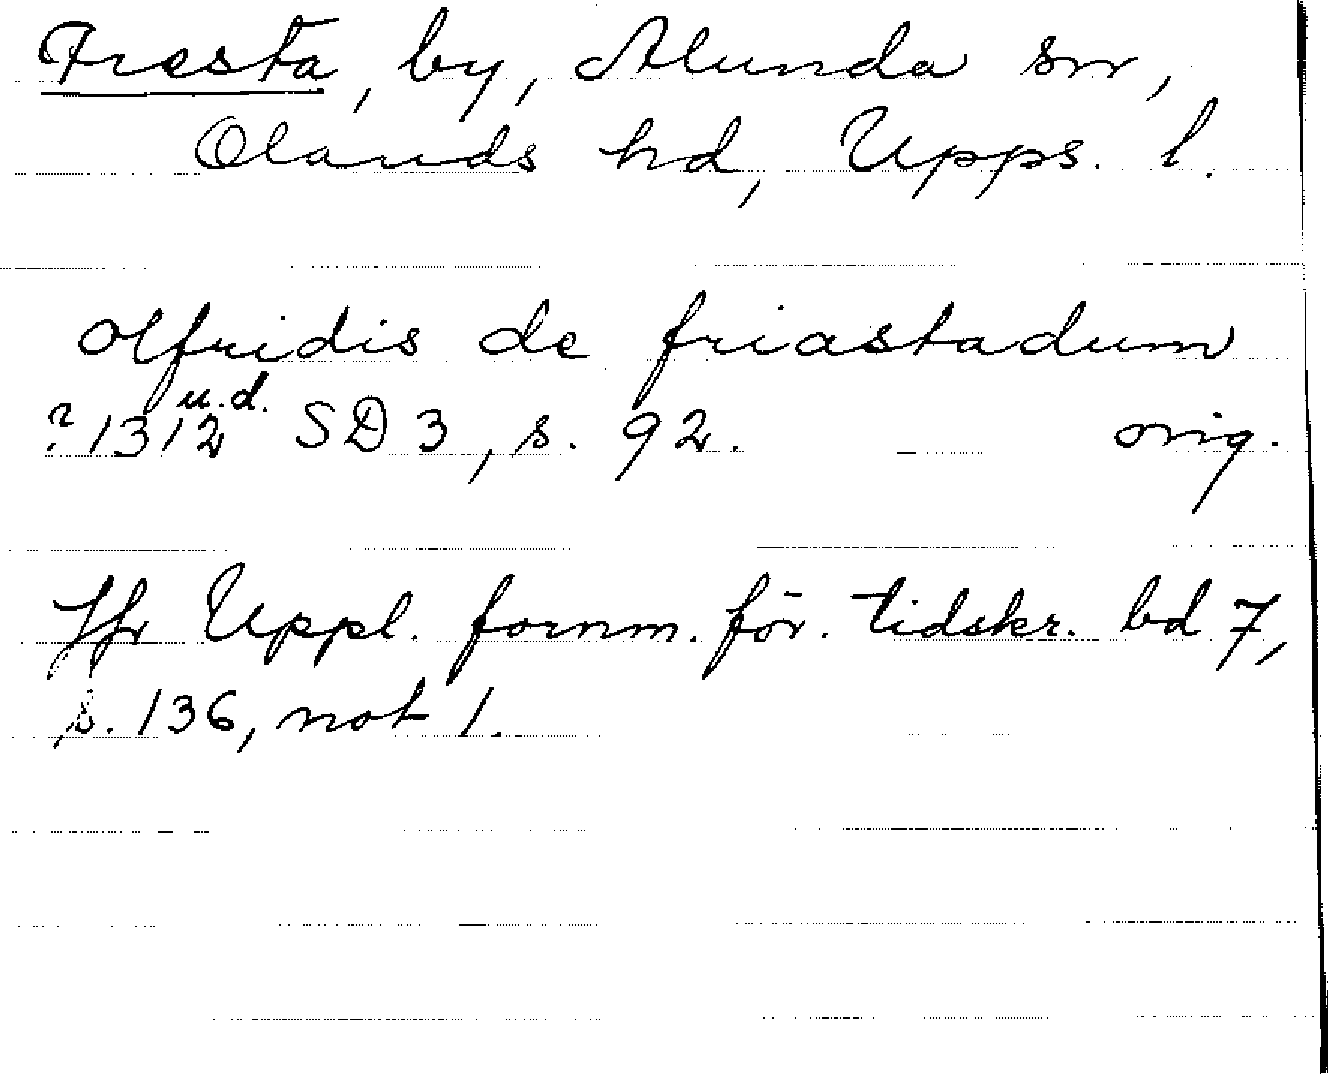 Fresta, by, Alunda sn,
Olands hd, Upps. l.
olfridis de friastadum
?1312 u.d. SD 3, s. 92. orig.
Jfr Uppl. fornm. för. tidskr. bd 7,
s. 136, not 1.